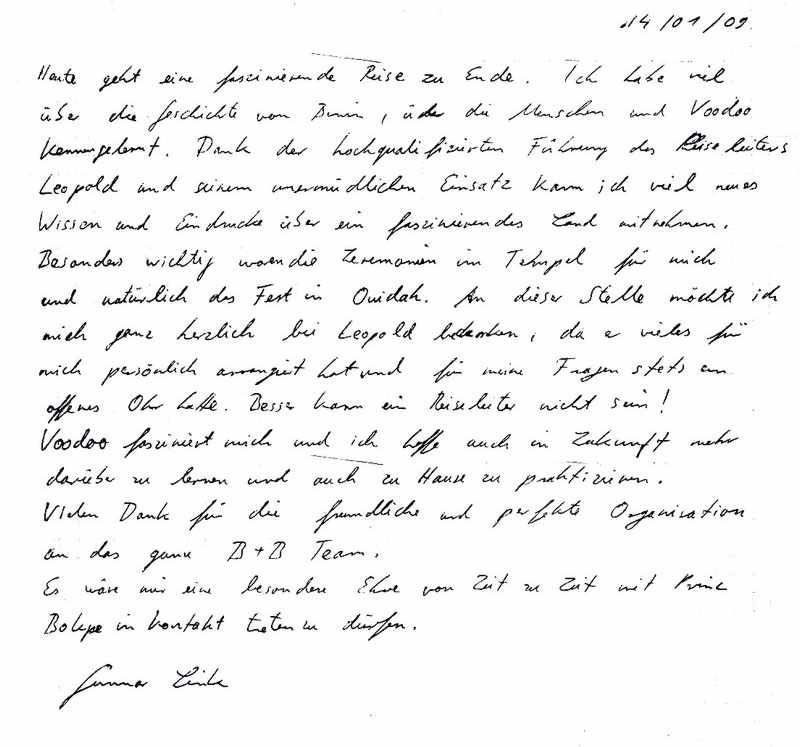 14/01/09
Heute geht eine faszinierende Reise zu Ende. Ich habe viel
über die Geschichte von Benin, über die Menschen und Voodoo
kennengelernt. Dank der hochqualifizierten Führung des Reiseleiters
Leopold und seinem unermüdlichen Einsatz kann ich viel neues
Wissen und Eindrücke über ein faszinierendes Land mitnehmen.
Besonders wichtig waren die Zeremonien im Tempel für mich
und natürlich das Fest in Ouidah. An dieser Stelle möchte ich
mich ganz herzlich bei Leopold bedanken, da er vieles für
mich persönlich arrangiert hat und für meine Fragen stets ein
offenes Ohr hatte. Besser kann ein Reiseleiter nicht sein!
Voodoo fasziniert mich und ich hoffe auch in Zukunft mehr
darüber zu lernen und auch zu Hause zu praktizieren.
Vielen Dank für die freundliche und perfekte Organisation
an das ganze B+B Team.
Es wäre mir eine besondere Ehre von Zeit zu Zeit mit
in Kontakt treten zu dürfen.
Gunnar